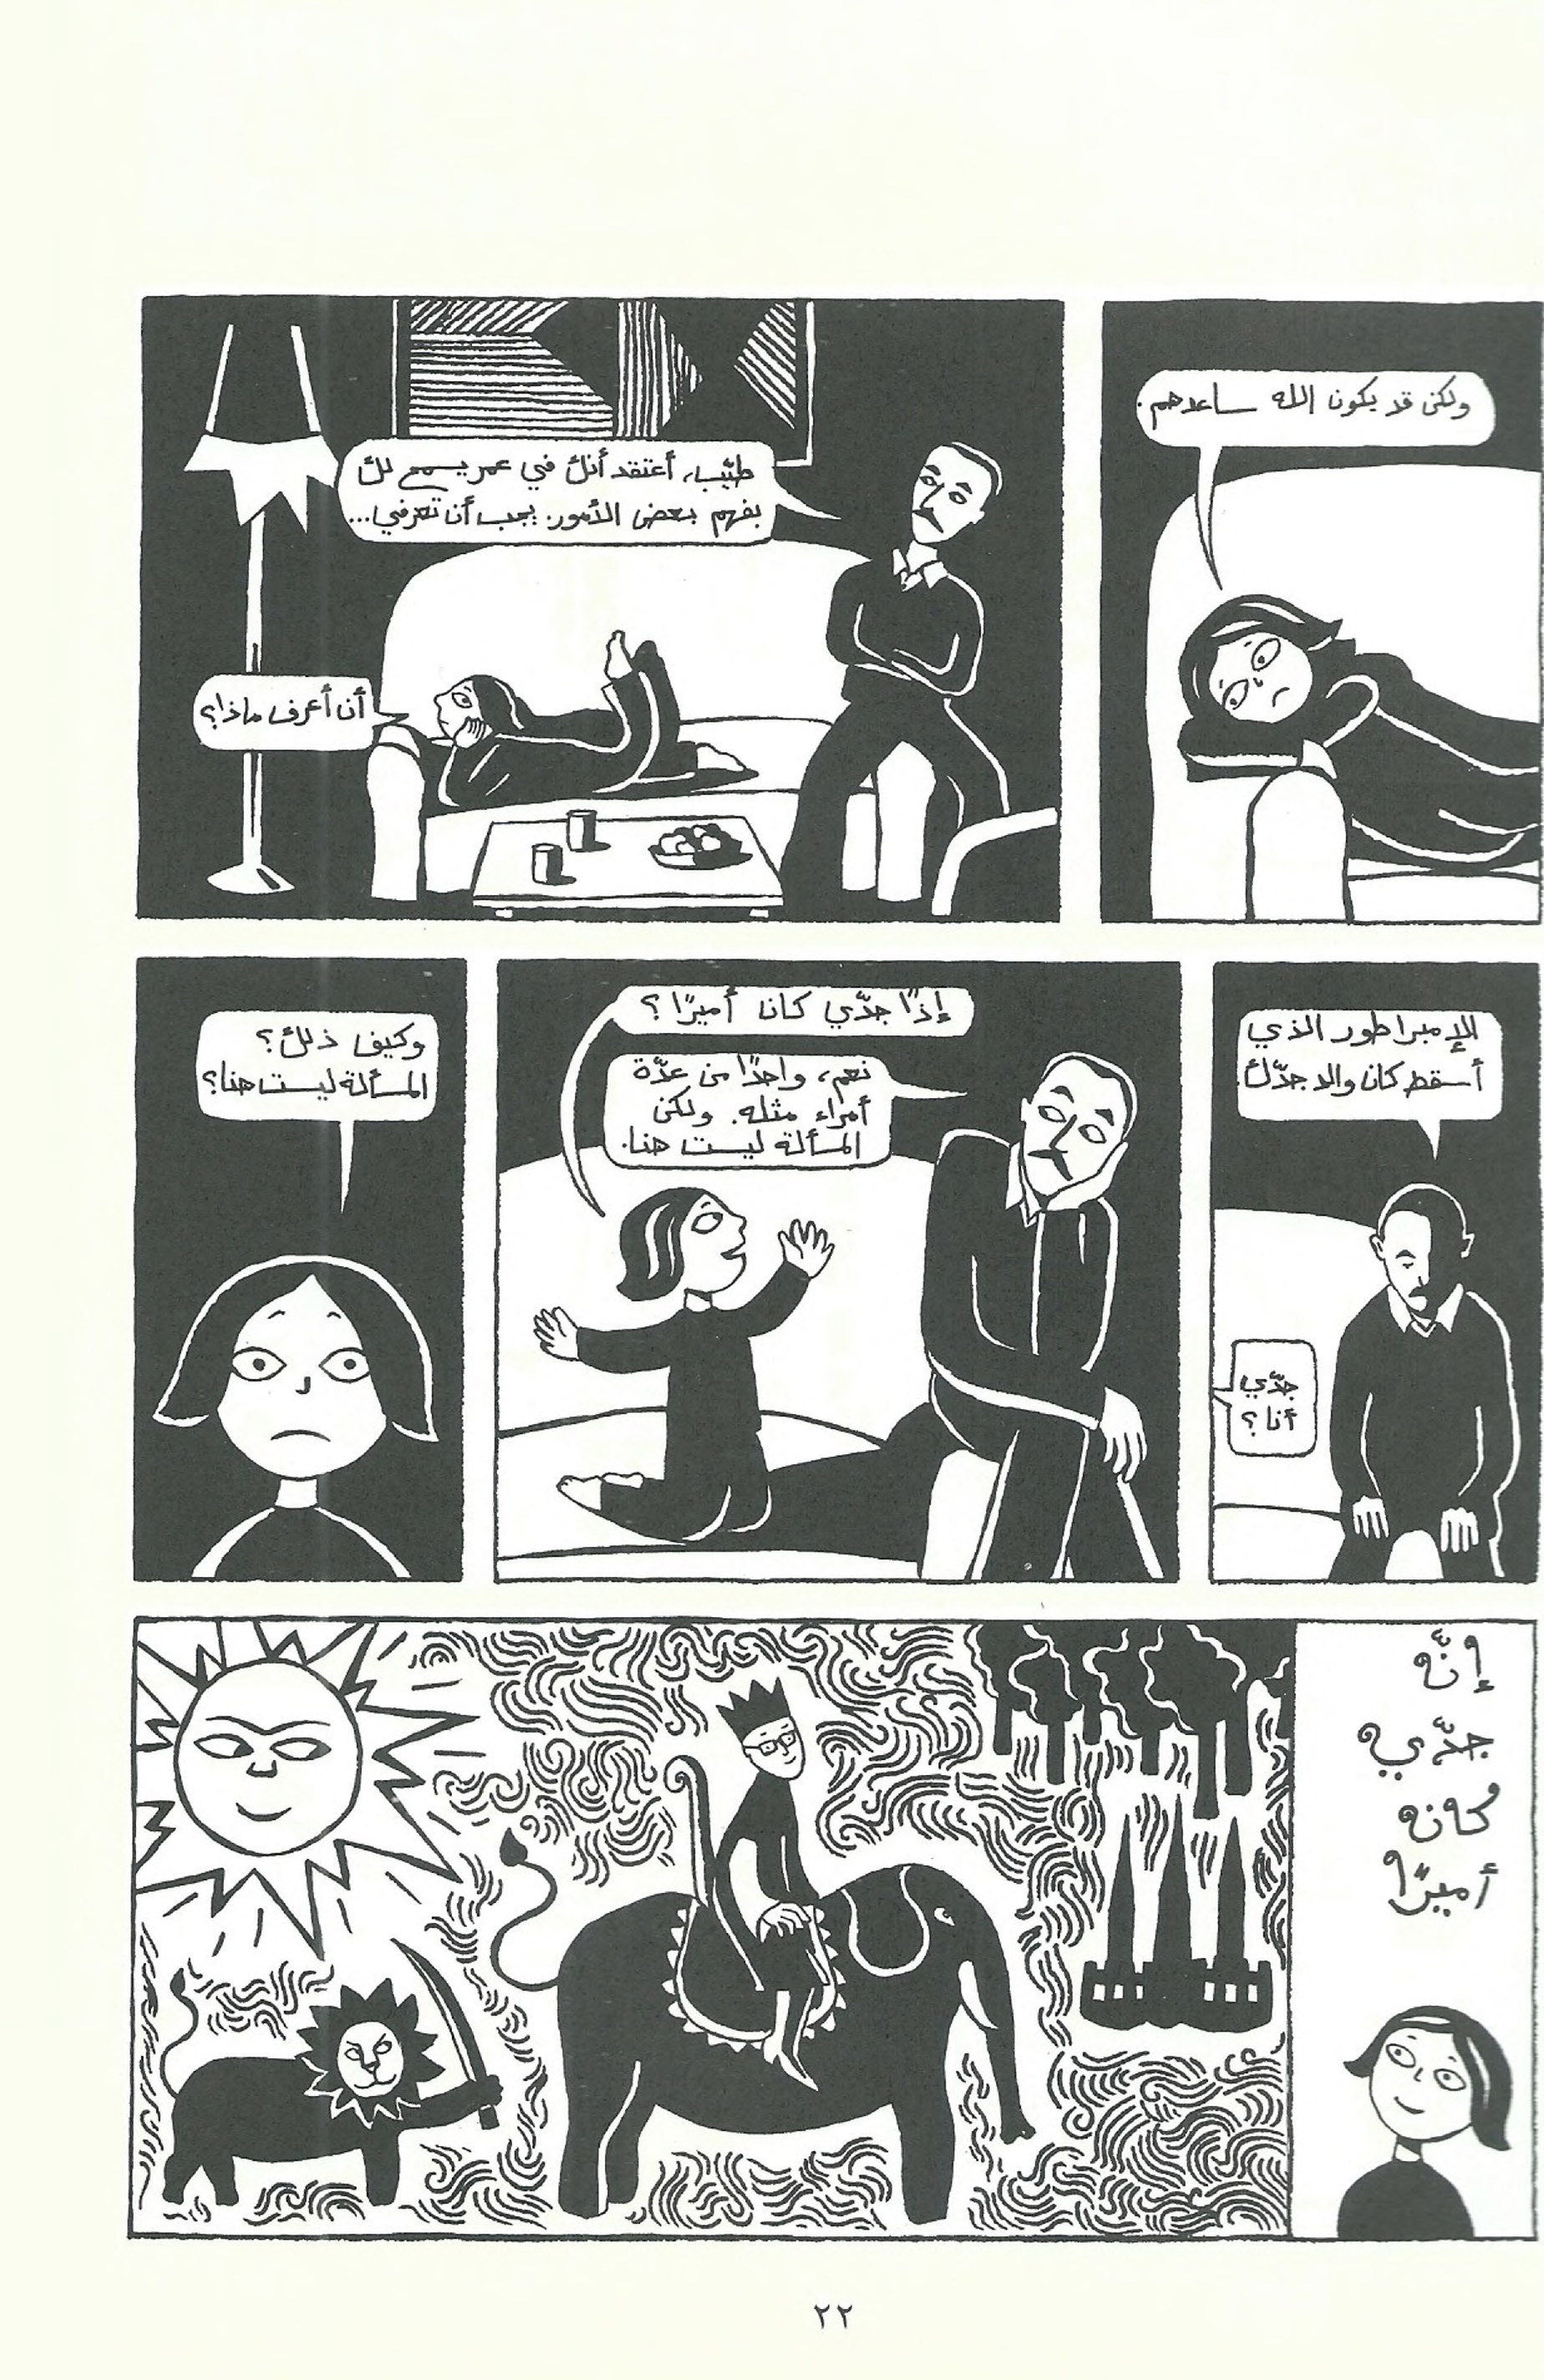 ولكن قد يكون الله ساعدهم.
طيّب، أعتقد أنك في عمر يسمح لك
بفهم بعض الأمور. يجب أن تعرفي...
أن أعرف ماذا؟
الإمبراطور الذي
أسقط كان والد جدّك.
جدّي
أنا؟
إذًا جدّي كان أميرًا؟
نعم، واحدًا من عدّة
أمراء مثله. ولكن
المسألة ليست هنا.
وكيف ذلك؟
المسألة ليست هنا؟
إنّه
جدّي
كان
أميرًا
٢٢